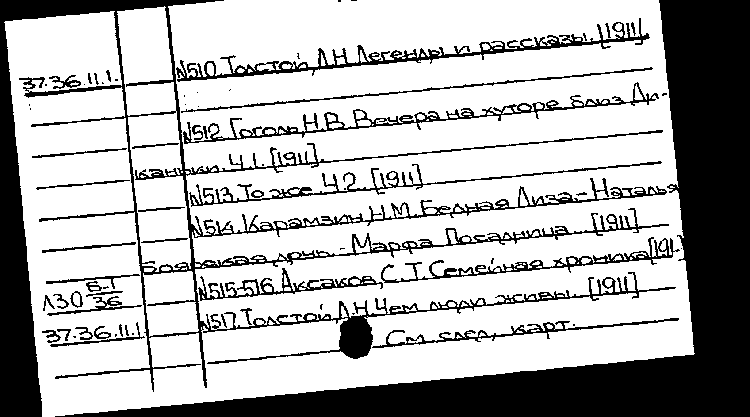 37.36.11.1. N510. Толстой, Л.Н. Легенды и рассказы. [1911].
N512. Гоголь, Н.В. Вечера на хуторе близ Ди-
каньки. Ч.1. [1911].
N513. То же. Ч.2. [1911]
N514. Карамзин, Н.М. Бедная Лиза.- Наталья
Боярская дочь. - Марфа Посадница. [1911]
Л30 Б-1/36 N515-516. Аксаков, С.Т. Семейная хроника [191.]
37.36.11.1. N517. Толстой, Л.Н. Чем люди живы. [1911]
См. след. карт.